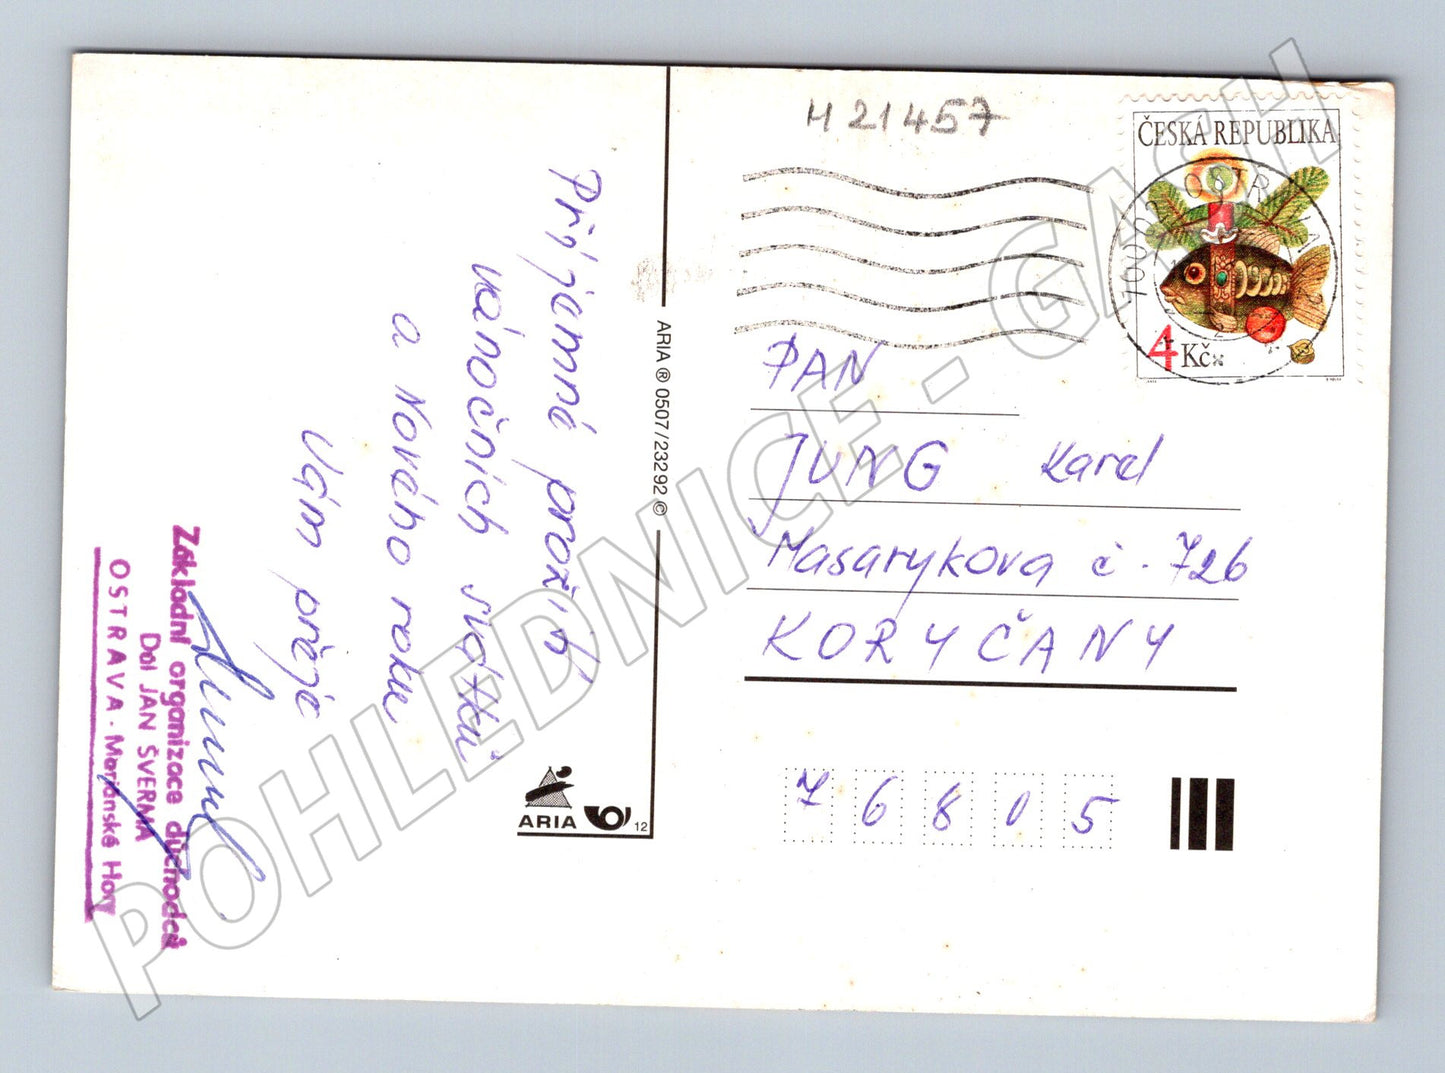 Příjemné prožití
vánočních svátků
a Nového roku
Vám přeje
Základní organizace důchodců
Důl JAN ŠVERMA
OSTRAVA - Mariánské Hory
ARIA ® 0507/23292 ©
ARIA
12
H 21457
ČESKÁ REPUBLIKA
4 Kč
PAN
JUNG Karel
Masarykova č. 726
KORYČANY
76805
POHLEDNICE - GASH